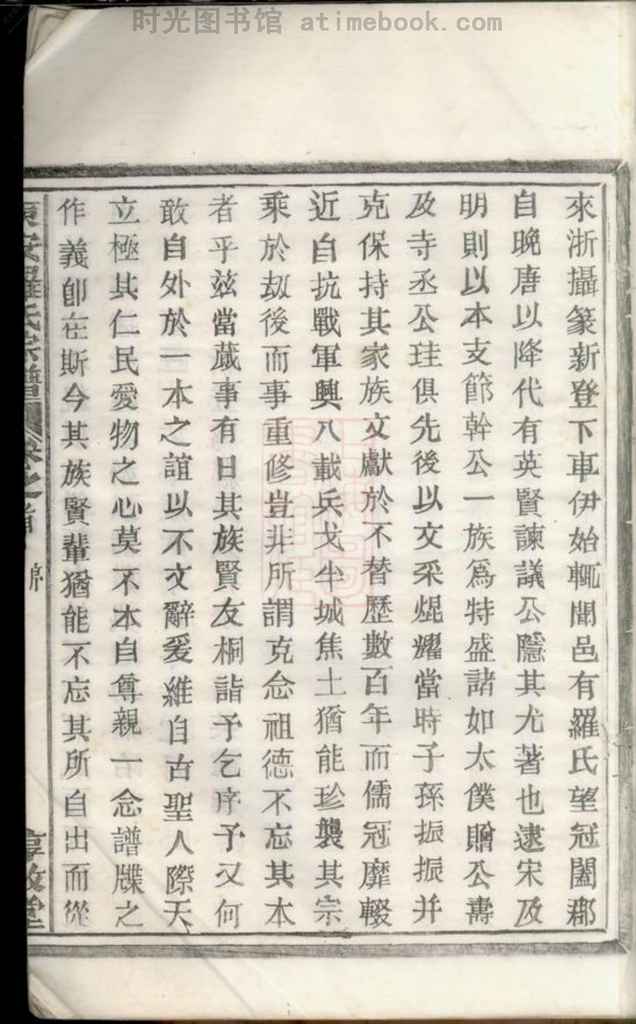 时光图书馆 atimebook.com
來浙攝篆新登下車伊始輒聞邑有羅氏望冠闔郡
自晚唐以降代有英賢諫議公隱其尤著也逮宋及
明則以本支節幹公一族爲特盛諸如太僕贈公壽
及寺丞公玤俱先後以文采焜耀當時子孫振振并
克保持其家族文獻於不替歷數百年而儒冠靡輟
近自抗戰軍興八載兵戈半城焦土猶能珍襲其宗
乘於刼後而事重修豈非所謂克念祖德不忘其本
者乎茲當蕆事有日其族賢友桐詣予乞序予又何
敢自外於一本之誼以不文辭爰維自古聖人際天
立極其仁民愛物之心莫不本自尊親一念譜牒之
作義卽在斯今其族賢輩猶能不忘其所自出而從
羅氏宗譜 卷之首